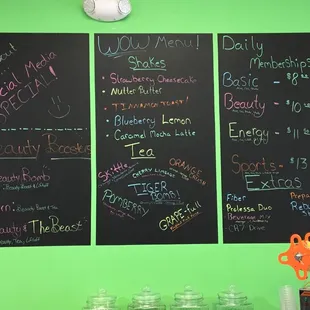 Social Media
SPECIAL!
Beauty Boosters
Beauty Bomb
Beauty & The Beast
WOW Menu!
Shakes
Strawberry Cheesecake
Nutter Butter
Blueberry Lemon
Caramel Mocha Latte
Tea
Skittle
ORANGE
CHERRY
TIGER
BOMB!
GRAPE-Full
Daily
Memberships
Basic - $8
Beauty - $10
Energy - $11
Sports - $13
Extras
Fiber
Prolessa Duo
Beverage
CR7 Drive